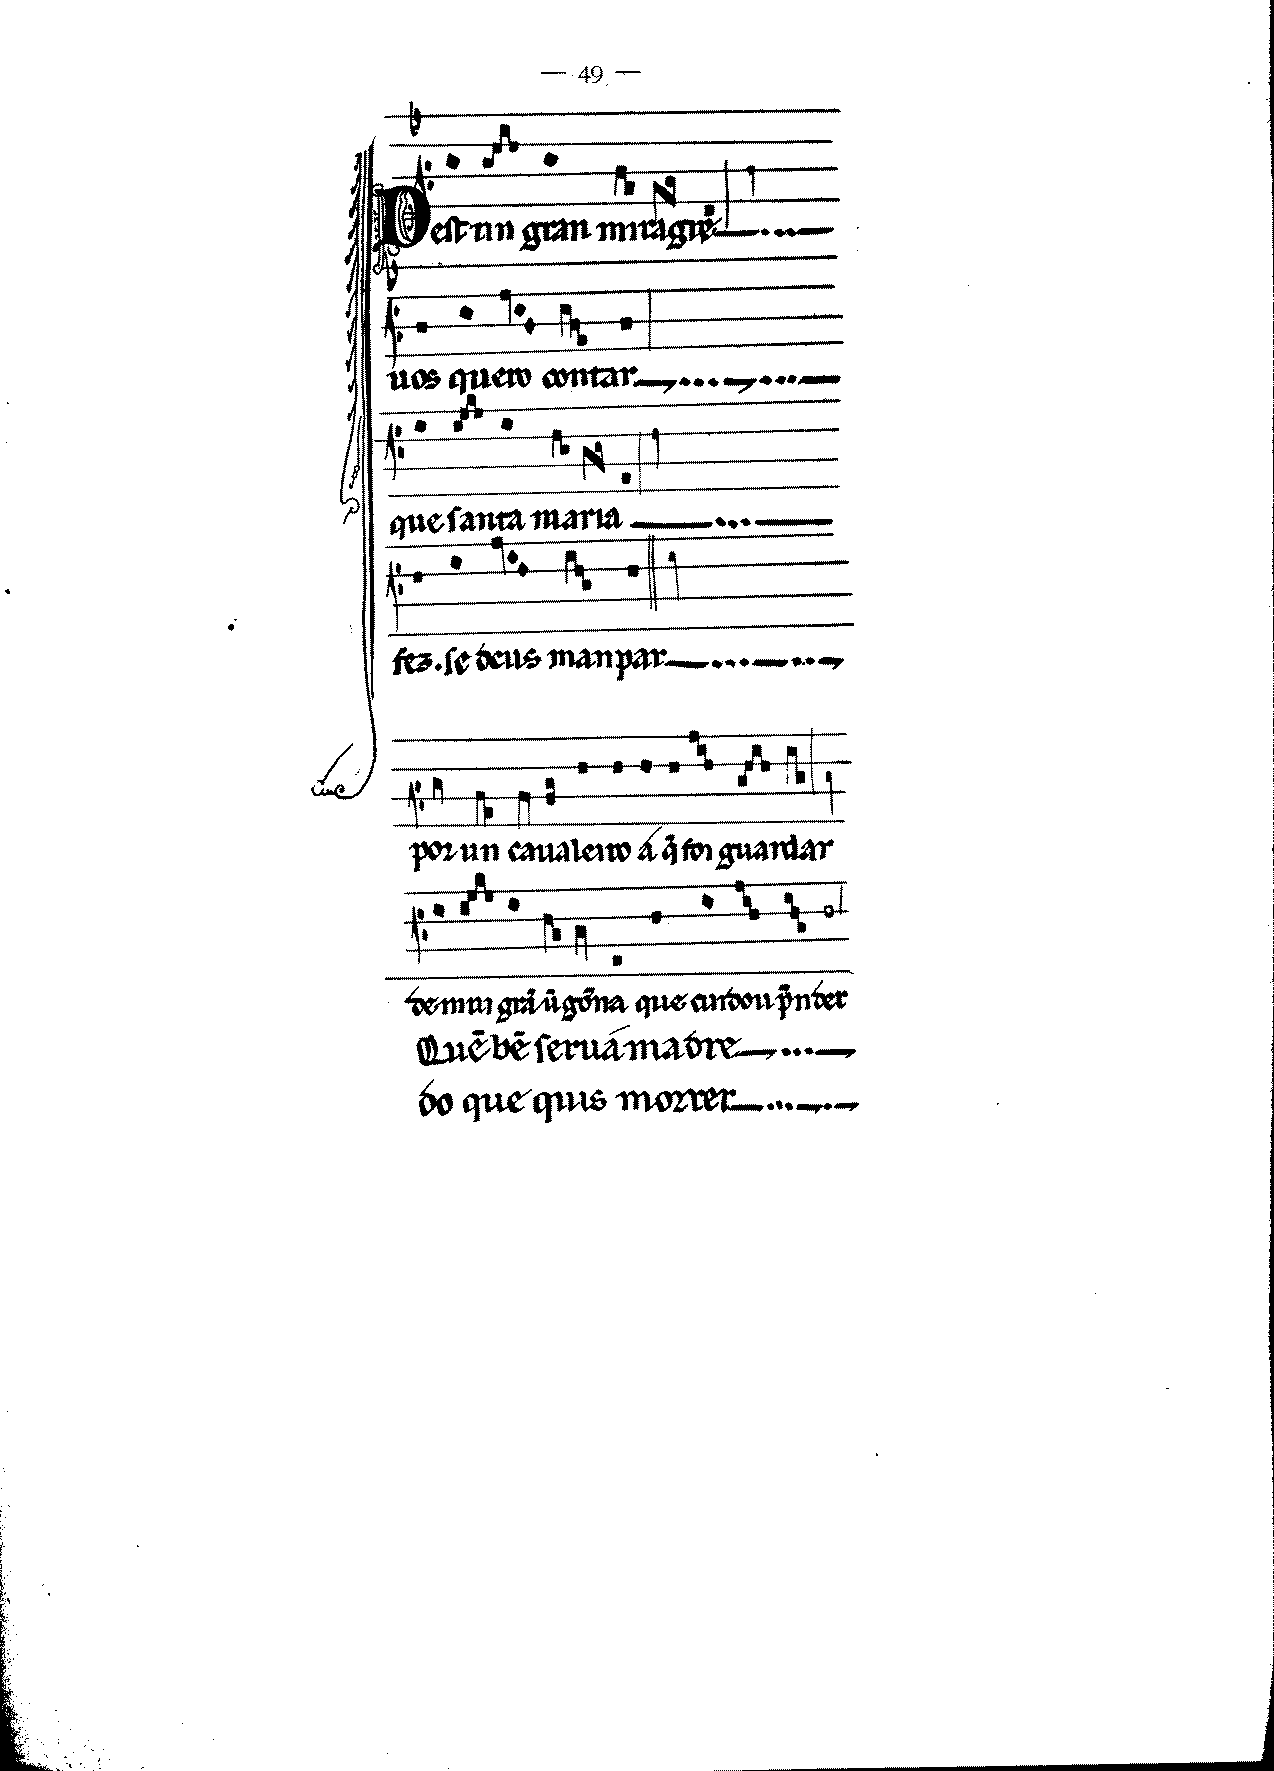 — 49 —
Dest un gran miragre
uos quero contar
que santa maria
fez. se deus manpar
por un caualeiro a q̃ foi guardar
de mui grã ũgõna que cuidou p̃nder
Quẽ bẽ serua madre
do que quis morrer